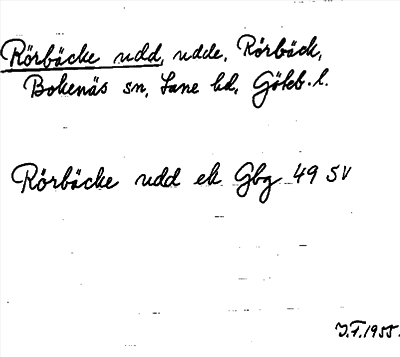 Rörbäcke udd, udde, Rörbäck,
Bokenäs sn, Lane hd, Göteb. l.
Rörbäcke udd ek Gbg 49 SV
J.F. 1955.